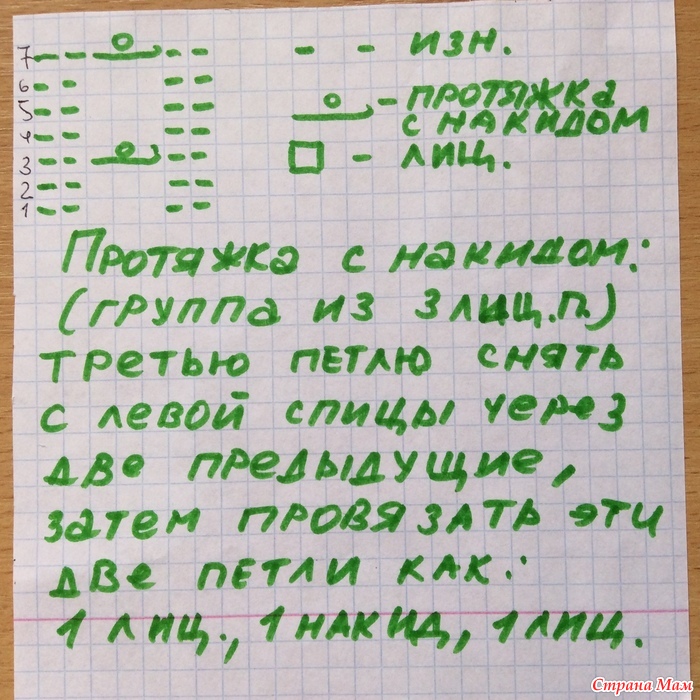 7 - - - - - - изн.
6 - - - -
5 - - - - - протяжка
с накидом
4 - - - -
3 - - - - - лиц.
2 - - - -
1 - - - -
Протяжка с накидом:
(группа из 3 лиц.п.)
третью петлю снять
с левой спицы через
две предыдущие,
затем провязать эти
две петли как:
1 лиц., 1 накид, 1 лиц.
Страна Мам